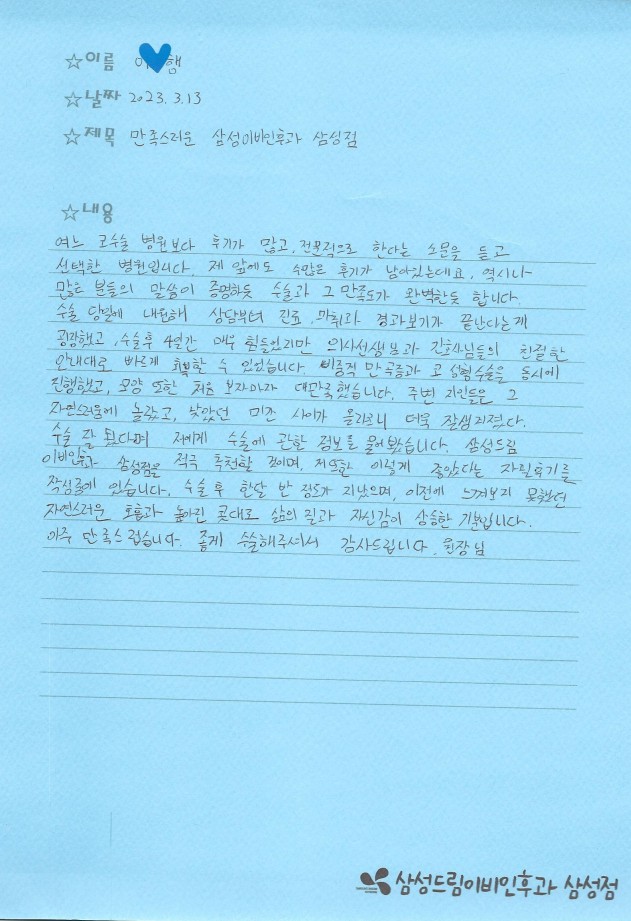 ☆이름 이 행
☆날짜 2023. 3. 13
☆제목 만족스러운 삼성이비인후과 삼성점
☆내용
여느 코수술 병원보다 후기가 많고, 전문적으로 한다는 소문을 듣고
선택한 병원입니다. 제 앞에도 수많은 후기가 남아있는데요, 역시나
많은 분들의 말씀이 증명하듯 수술과 그 만족도가 완벽한듯 합니다.
수술 당일에 내원해 상담부터 진료, 마취와 경과보기가 끝난다는게
굉장했고, 수술후 4일간 매우 힘들었지만 의사선생님과 간호사님들의 친절한
안내대로 빠르게 회복할 수 있었습니다. 비중격 만곡증과 코 성형수술을 동시에
진행했고, 모양 또한 처음 보자마자 대만족했습니다. 주변 지인들은 그
자연스러움에 놀랐고, 낮았던 미간 사이가 올라오니 더욱 잘생겨졌다.
수술 잘 됐다며 저에게 수술에 관한 정보를 물어봤습니다. 삼성드림
이비인후과 삼성점을 적극 추천할 것이며, 저또한 이렇게 좋았다는 자필후기를
작성중에 있습니다. 수술 후 한달 반 정도가 지났으며, 이전에 느껴보지 못했던
자연스러운 호흡과 높아진 콧대로 삶의 질과 자신감이 상승한 기분입니다.
아주 만족스럽습니다. 좋게 수술해주셔서 감사드립니다. 원장님
삼성드림이비인후과 삼성점